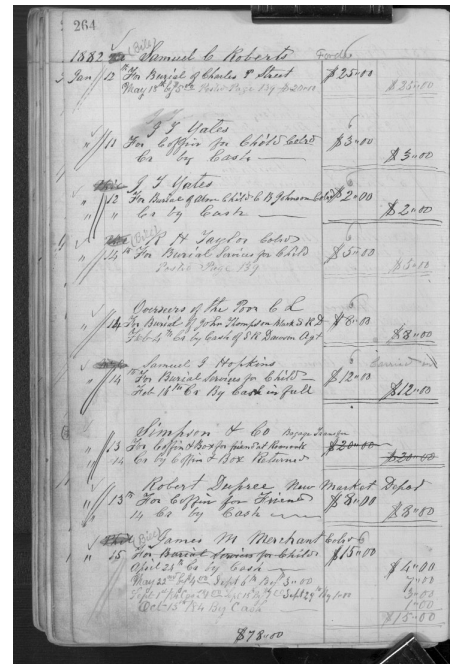 264
1882 (Bill) Samuel C Roberts Forda
Jan 12th For Burial of Charles P Street $25"00
May 18th by 5 Page 139 $20"00 $25"00
J T Yates
" 11 For Coffin for Child Colrd $3"00
Cr by Cash $3"00
J T Yates
" 12 For Burial of Above Child C B Johnson Colrd $2"00
" " Cr by Cash $2"00
(Bill) H Taylor Colrd
" 14th For Burial Services for Child $5"00
Page 139 $5"00
Overseers of the Poor C L
" 14 For Burial of John Thompson S R D $8"00
Feb 4th Cr by Cash of S R Dawson Agt $8"00
Samuel G Hopkins
" 14th For Burial Services for Child $12"00
Feb 18th Cr By Cash in full $12"00
Simpson & Co
" 13 For Coffin & Box for friend's Remains $20"00
" 14 Cr by Coffin & Box Returned $20"00
Robert Dupree New Market Depot
" 13th For Coffin for Friend $8"00
" 14 Cr by Cash $8"00
(Bill) James M Merchant Colrd
" 15 For Burial Services for Child $15"00
April 25th Cr by Cash $4"00
May 22nd Sept 6th By 3"00
Sept 29th By 1"00
Oct 15th By Cash 1"00
$15"00
$78"00